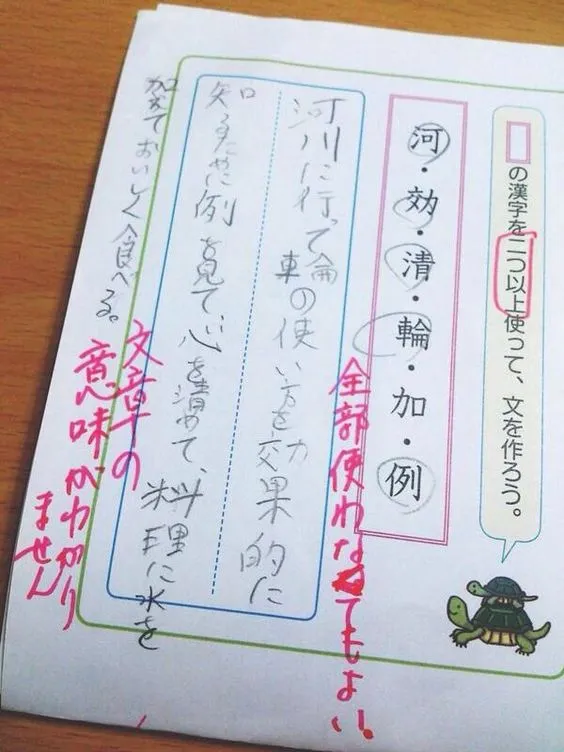 □の漢字を二つ以上使って、文を作ろう。
河・効・清・輪・加・例
河川に行って輪の使い方を効果的に
知るために例を見て、心を清めて、料理に水を
加えておいしく食べる。
全部使わなくてもよい!
文章の
意味がわかり
ません